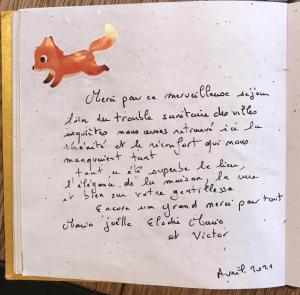 Merci par ce merveilleuse séjour
loin du trouble sanitaire des villes
inquiètes nous avons retrouvé ici la
sérénité et le réconfort qui nous
manquaient tant
tout a été superbe le lieu,
l'élégance de la maison, la vue
et bien sur votre gentillesse
Encore un grand merci par tout
Mario Joëlle Elodie Mario
et Victor
Avril 2021